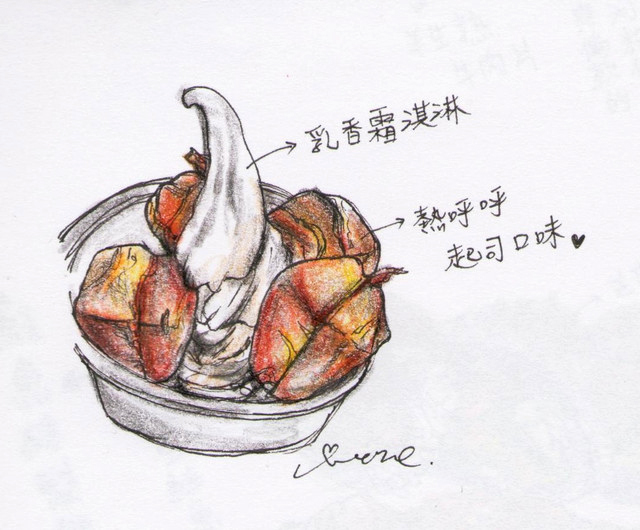 乳香霜淇淋
熱呼呼
起司口味♥